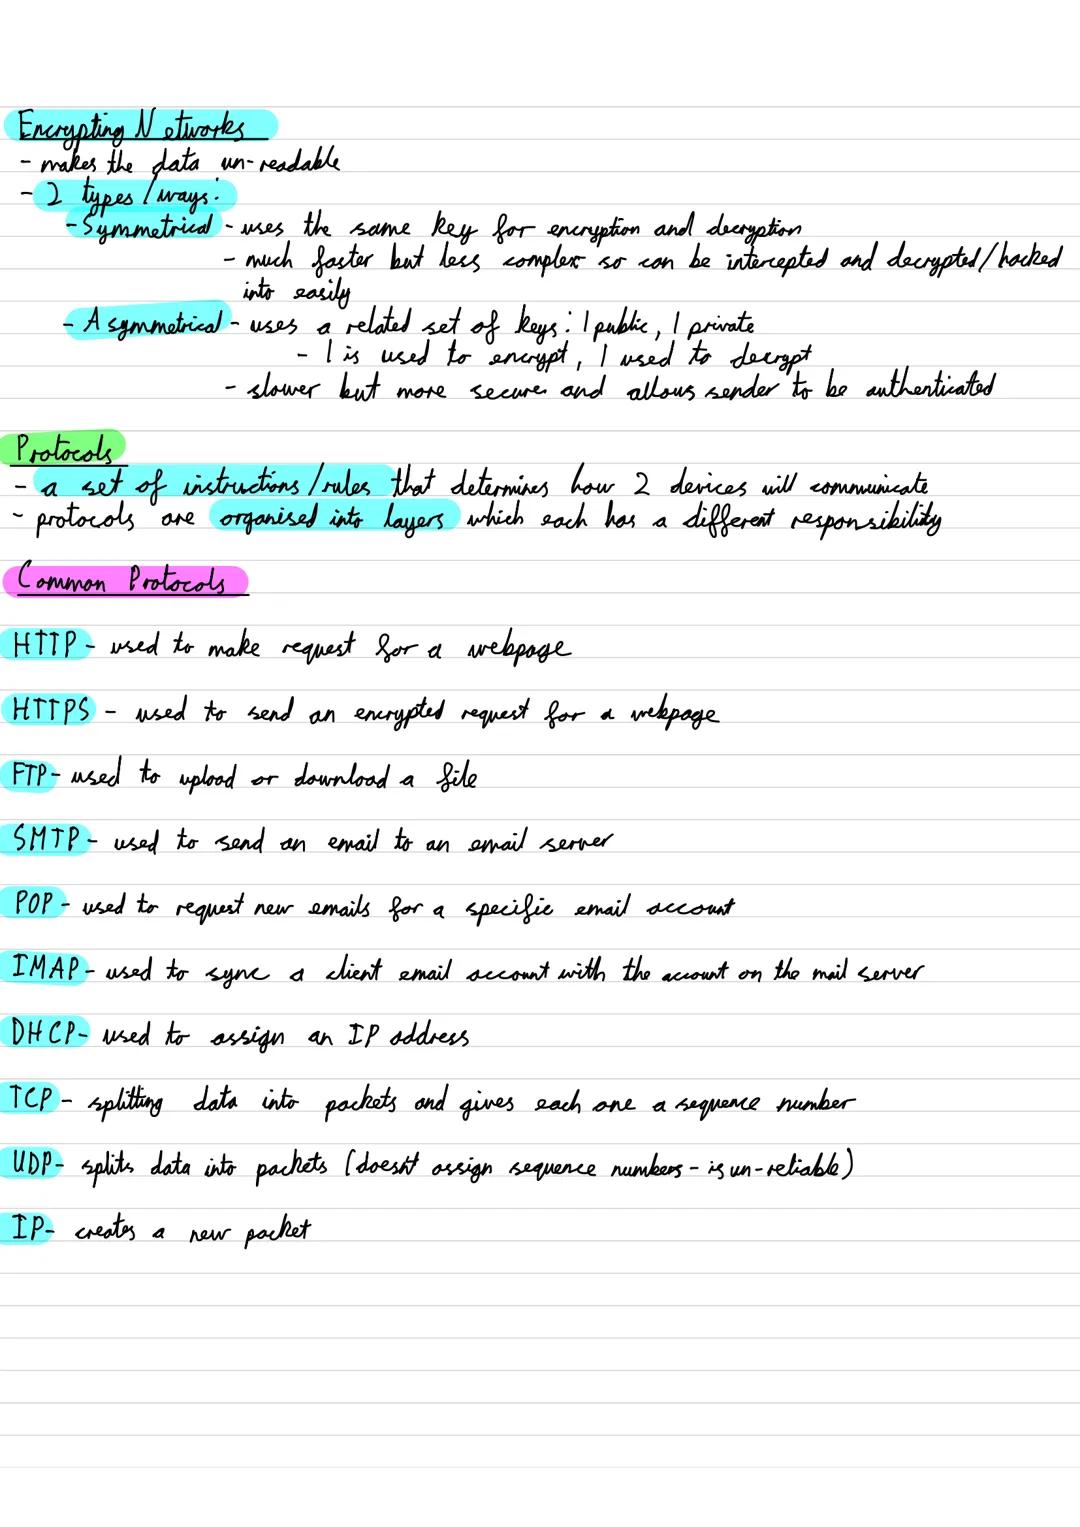 Encrypting Networks
- makes the data un-readable
- 2 types/ways:
- Symmetrical - uses the same key for encryption and decryption
- much faster but less complex so can be intercepted and decrypted/hacked
into easily
- Asymmetrical - uses a related set of keys: 1 public, 1 private
- 1 is used to encrypt, 1 used to decrypt
- slower but more secure and allows sender to be authenticated
Protocols
- a set of instructions/rules that determines how 2 devices will communicate
- protocols are organised into layers which each has a different responsibility
Common Protocols
HTTP - used to make request for a webpage
HTTPS - used to send an encrypted request for a webpage
FTP - used to upload or download a file
SMTP - used to send an email to an email server
POP - used to request new emails for a specific email account
IMAP - used to sync a client email account with the account on the mail server
DHCP - used to assign an IP address
TCP - splitting data into packets and gives each one a sequence number
UDP - splits data into packets (doesn't assign sequence numbers - is un-reliable)
IP - creates a new packet